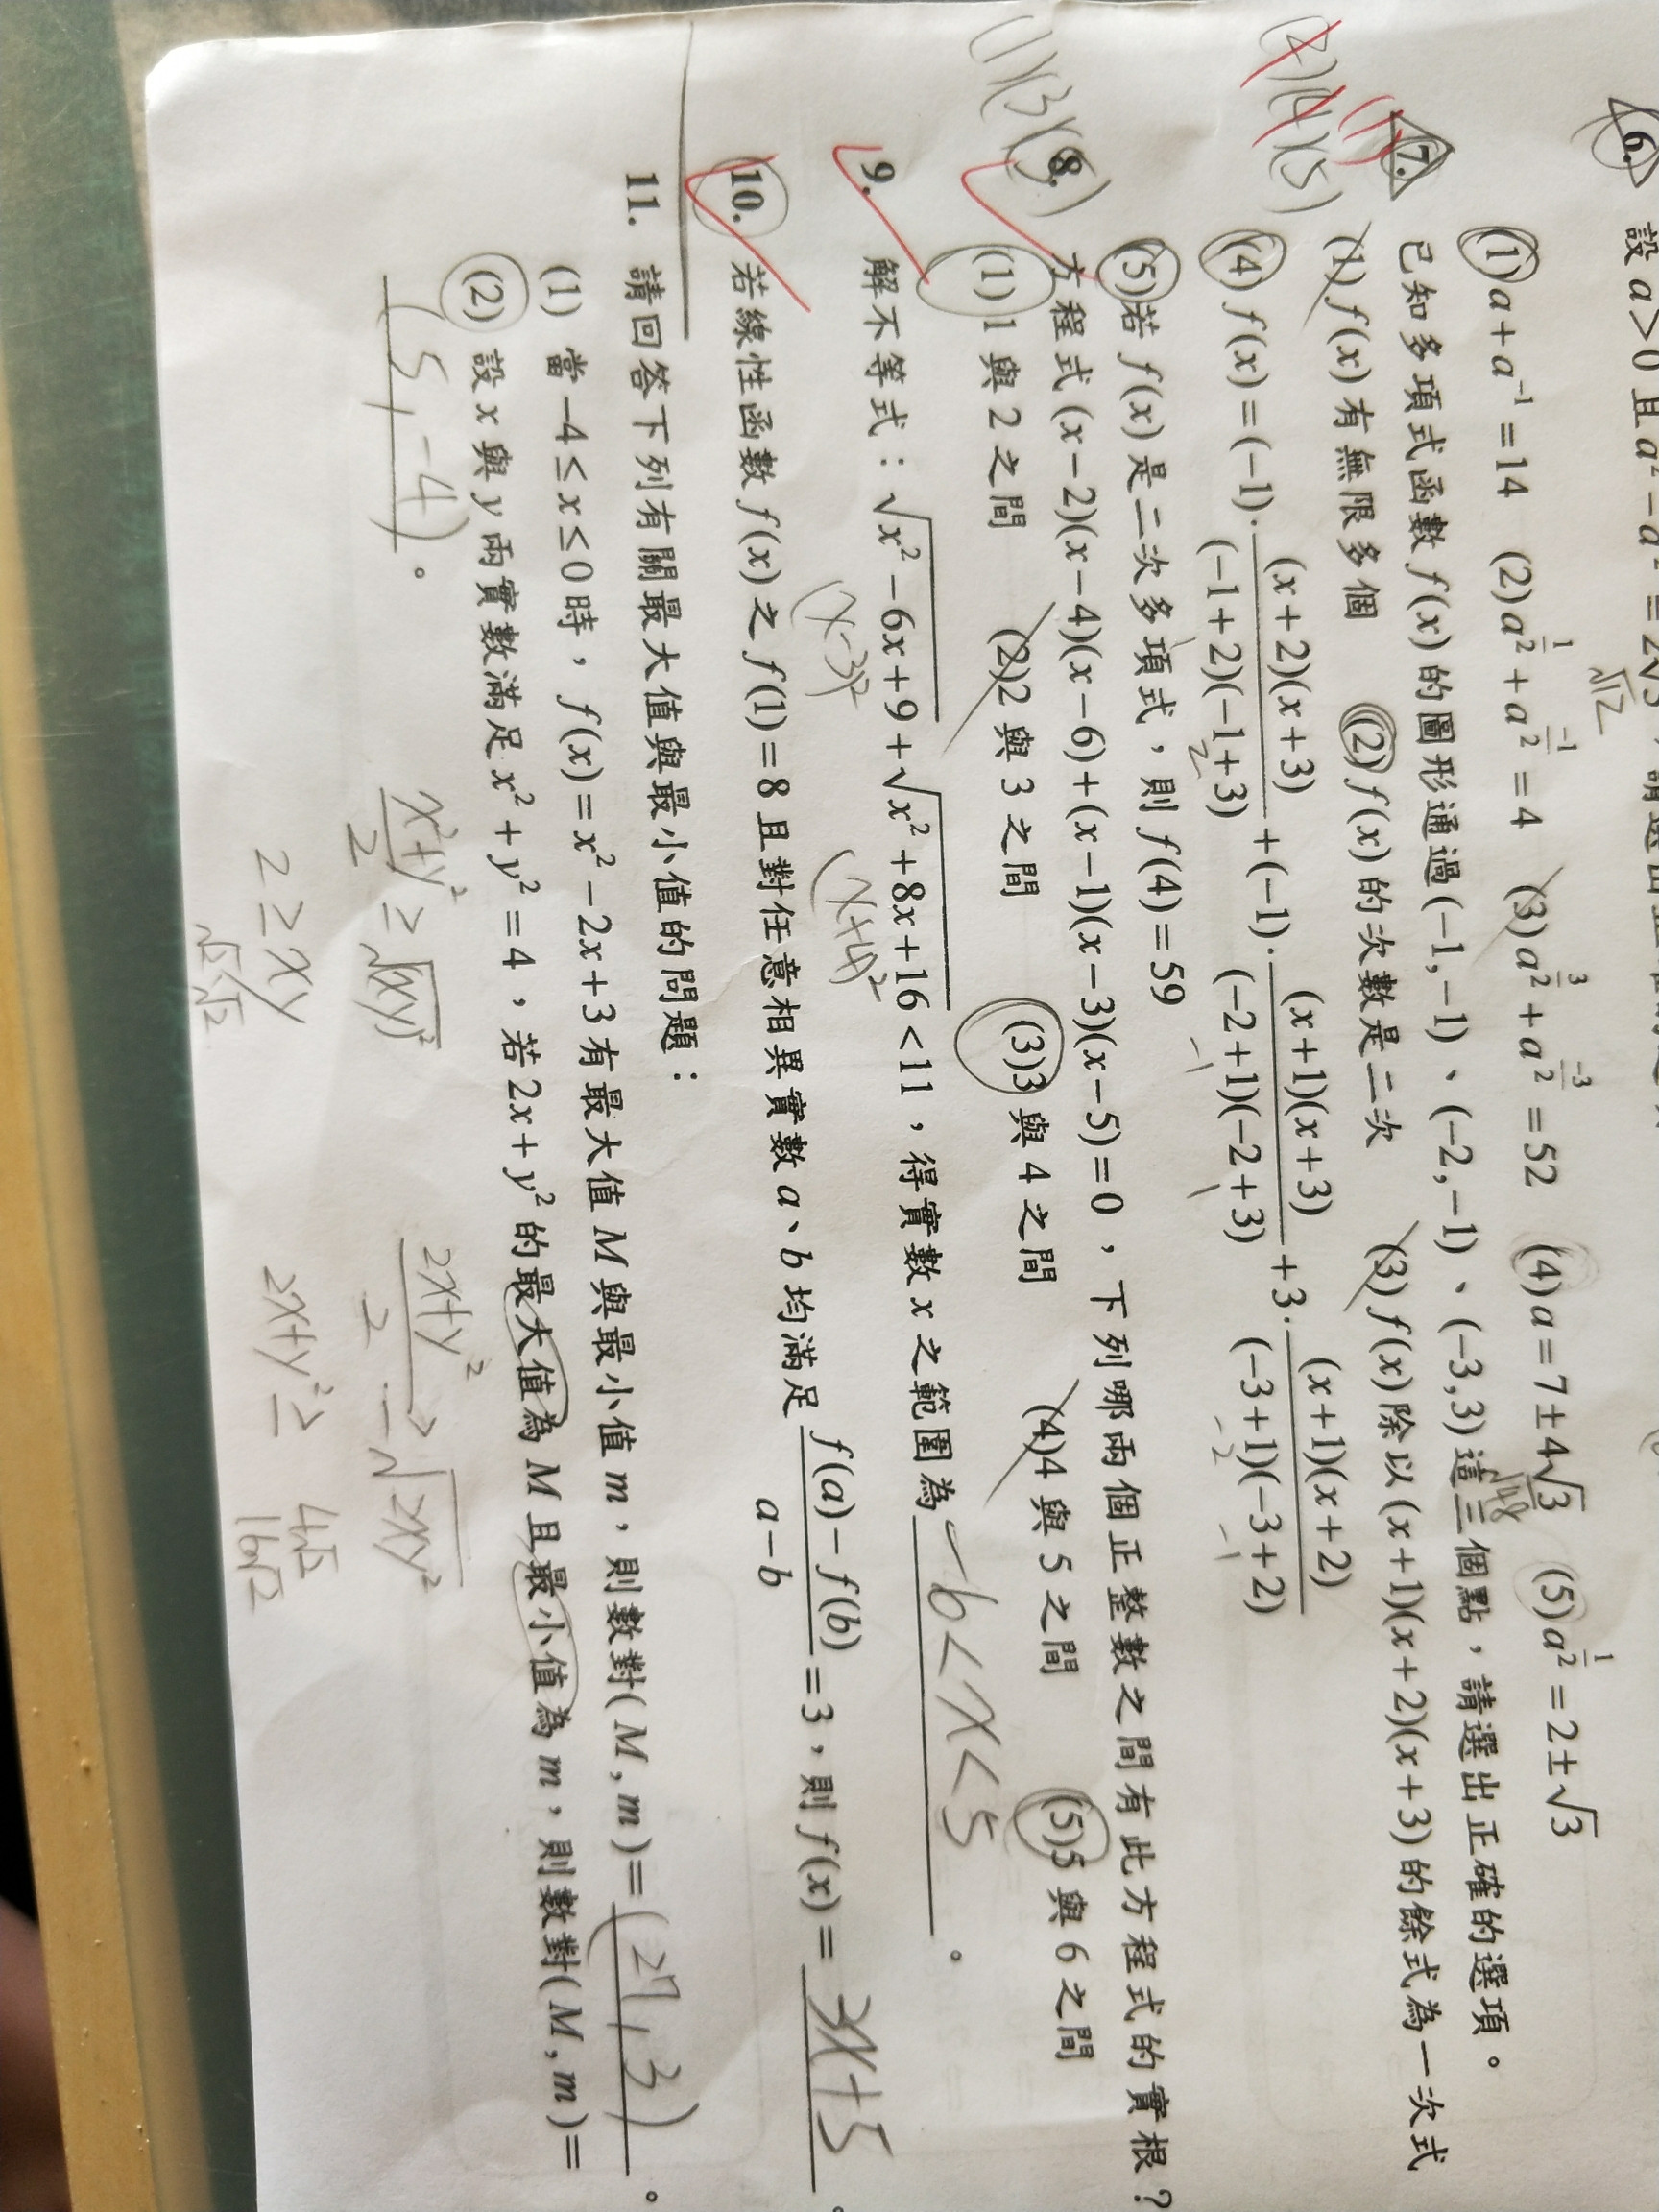 6. 設 a>0 且 a² - a⁻² = 2√3,請選出正確的選項
√12
(1) a+a⁻¹=14 (2) a^(1/2)+a^(-1/2)=4 (3) a^(3/2)+a^(-3/2)=52 (4) a=7±4√3 (5) a^(1/2)=2±√3
√48
7. 已知多項式函數 f(x) 的圖形通過(-1,-1)、(-2,-1)、(-3,3)這三個點,請選出正確的選項。
(1)
(2)(4)(5)
(1) f(x)有無限多個 (2) f(x)的次數是二次 (3) f(x)除以(x+1)(x+2)(x+3)的餘式為一次式
(4) f(x)=(-1)·(x+2)(x+3)/(-1+2)(-1+3)+(-1)·(x+1)(x+3)/(-2+1)(-2+3)+3·(x+1)(x+2)/(-3+1)(-3+2)
2 -1 1 -2 -1
(5)若 f(x)是二次多項式,則 f(4)=59
8. 方程式(x-2)(x-4)(x-6)+(x-1)(x-3)(x-5)=0,下列哪兩個正整數之間有此方程式的實根?
(1)(3)(5)
(1)1與2之間 (2)2與3之間 (3)3與4之間 (4)4與5之間 (5)5與6之間
9. 解不等式:√(x²-6x+9)+√(x²+8x+16)<11,得實數x之範圍為 -6<x<5 。
(x-3)² (x+4)²
10. 若線性函數 f(x)之 f(1)=8且對任意相異實數a、b均滿足 f(a)-f(b)/a-b=3,則 f(x)= 3x+5 。
11. 請回答下列有關最大值與最小值的問題:
(1) 當-4≤x≤0時,f(x)=x²-2x+3有最大值M與最小值m,則數對(M,m)= (27,3) 。
(2) 設x與y兩實數滿足x²+y²=4,若2x+y²的最大值為M且最小值為m,則數對(M,m)=
(5,-4) 。
x²+y²/2 ≥ √(xy)² 2x+y²/2 ≥ √2xy²
2≥xy 2x+y²≥
√2√2 4√2
16√2